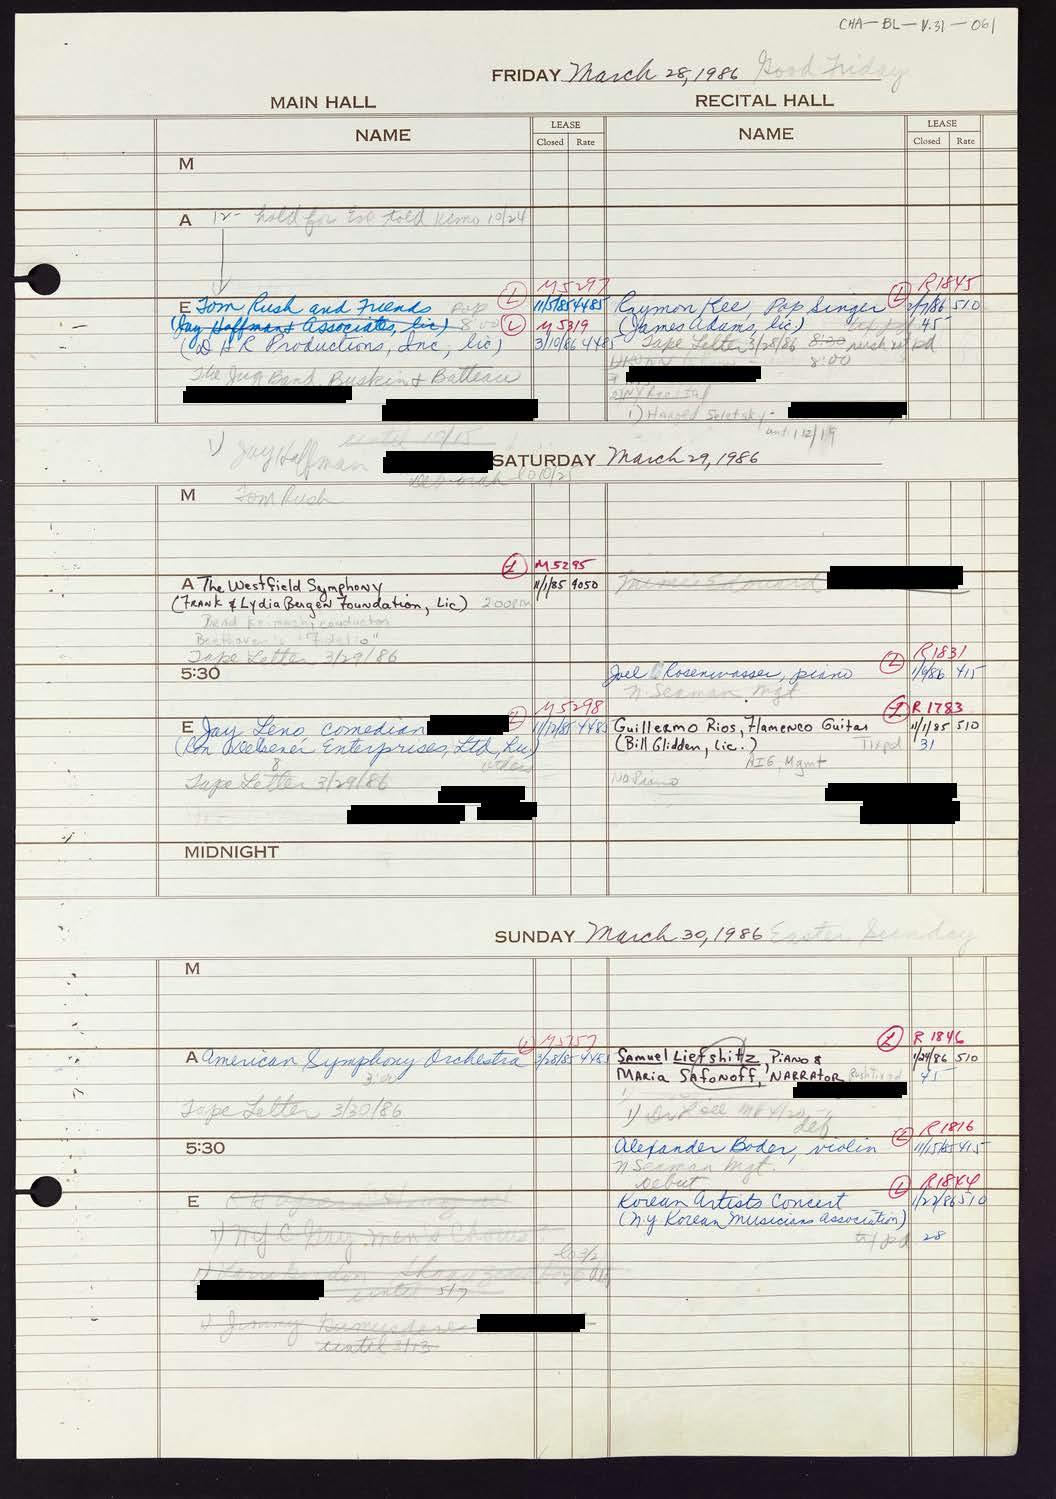 CHA-BL-V.31-061
FRIDAY March 28, 1986 Good Friday
MAIN HALL
RECITAL HALL
NAME
LEASE
Closed Rate
NAME
LEASE
Closed Rate
M
A 12- hold for told 10/24
M5297
R1845
E Tom Rush and Friends Pop L 11/5/85 4485
Raymon Kee, Pop Singer L 510
(Jay Hoffman & Associates, lic) 8:00 L M5319
(James Adams, lic.) 45
(D H R Productions, Inc, lic) 3/10/86 4485
Tape Letter 3/28/86 8:30 pd
8:00
The Jug Band, Buskin & Batteau
NY Recital
1) Harold
until 12/19
until 10/15
1) Jay Hoffman
SATURDAY March 29, 1986
M Tom Rush
L M5295
A The Westfield Symphony 11/1/85 4050
(Frank & Lydia Bergen Foundation, Lic) 2:00PM
conductor
Beethoven's "Fidelio"
Tape Letter 3/29/86
L R1831
5:30
Joel Rosenwasser, piano 1/9/86 415
N. Seaman Mgt
L M5298
L R1783
E Jay Leno, comedian 11/12/85 4485
Guillermo Rios, Flamenco Guitar 11/1/85 510
(Ron Delsener Enterprises, Ltd, Lic)
(Bill Glidden, Lic.) 31
8
AIG, Mgmt
Tape Letter 3/29/86
No Piano
MIDNIGHT
SUNDAY March 30, 1986 Easter Sunday
M
L
L R1846
A American Symphony Orchestra 3/28/85 4485
Samuel Liefshitz, Piano & 1/24/86 510
3:00
Maria Safonoff, Narrator 45
Tape Letter 3/30/86
1)
def
L R1816
5:30
Alexander Boder, violin 11/15/85 415
N Seaman Mgt.
Debut
L R1844
E
Korean Artists Concert 1/22/86 510
(N.Y Korean Musicians Association)
1) NYC Gay Men's Chorus
pd 28
until 5/7
1) Jimmy
until 3/13